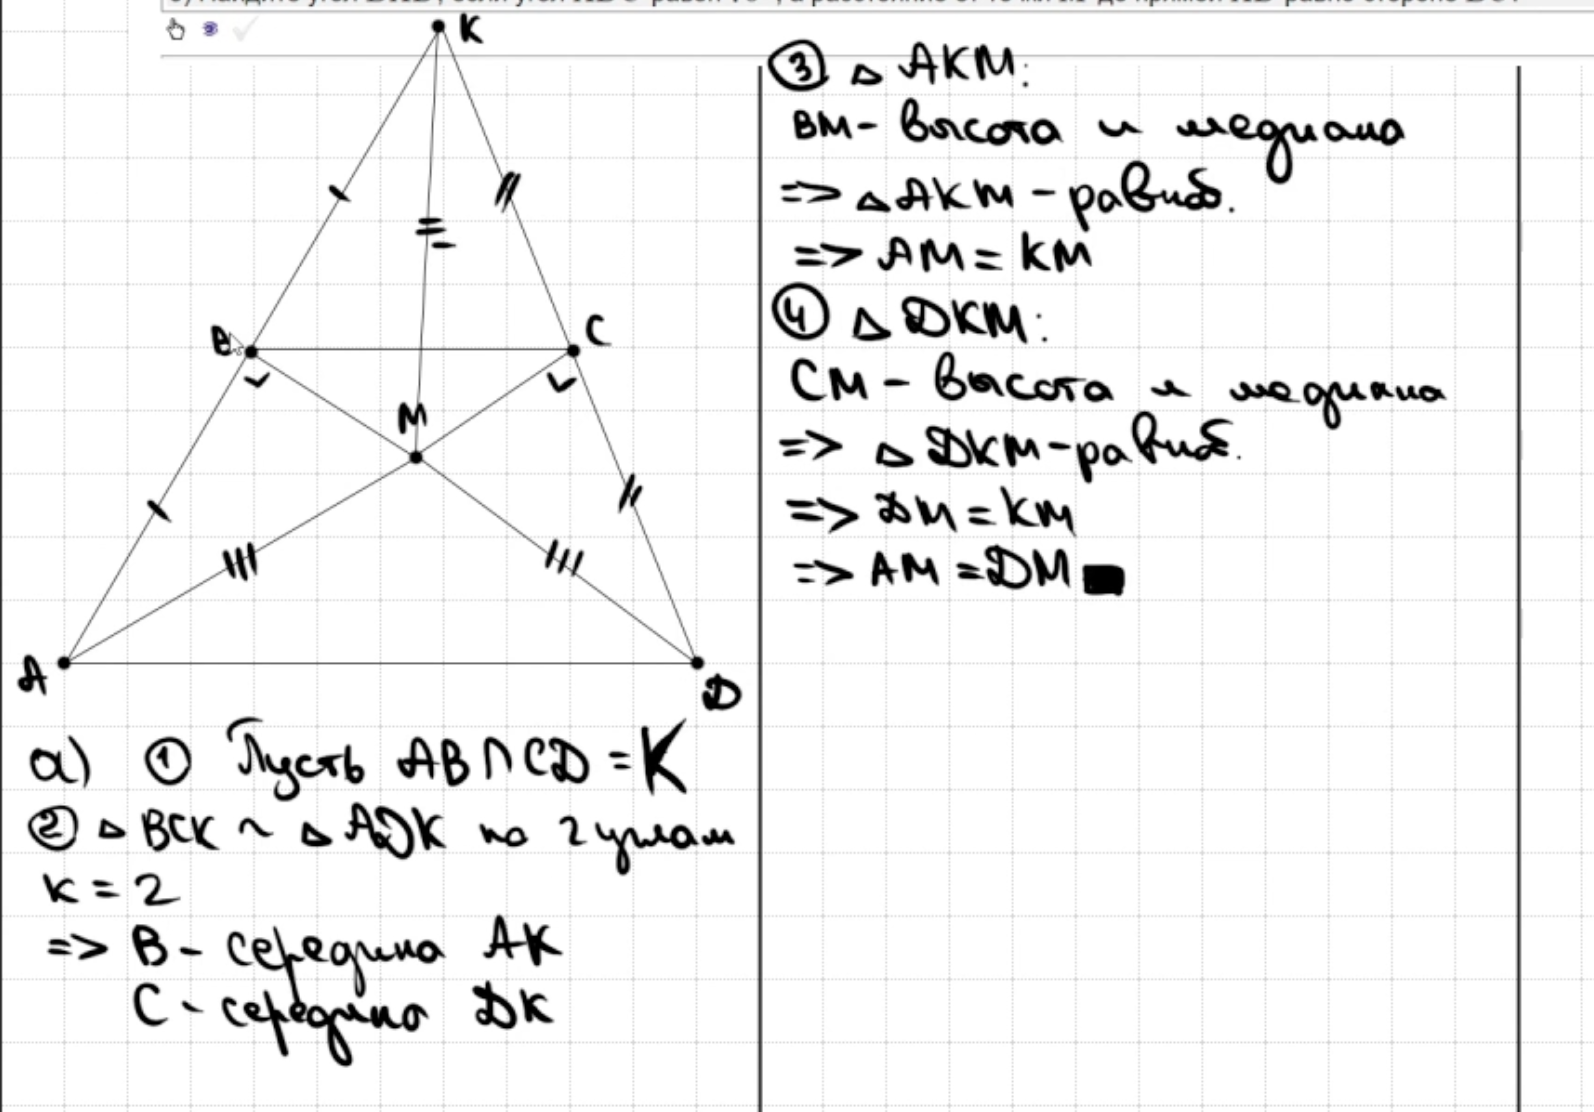 K
B
C
M
A
D
а) ① Пусть AB ∩ CD = K
② △ BCK ~ △ ADK по 2 углам
k = 2
=> B - середина AK
C - середина DK
③ △ AKM:
BM - высота и медиана
=> △ AKM - равноб.
=> AM = KM
④ △ DKM:
CM - высота и медиана
=> △ DKM - равноб.
=> DM = KM
=> AM = DM ■